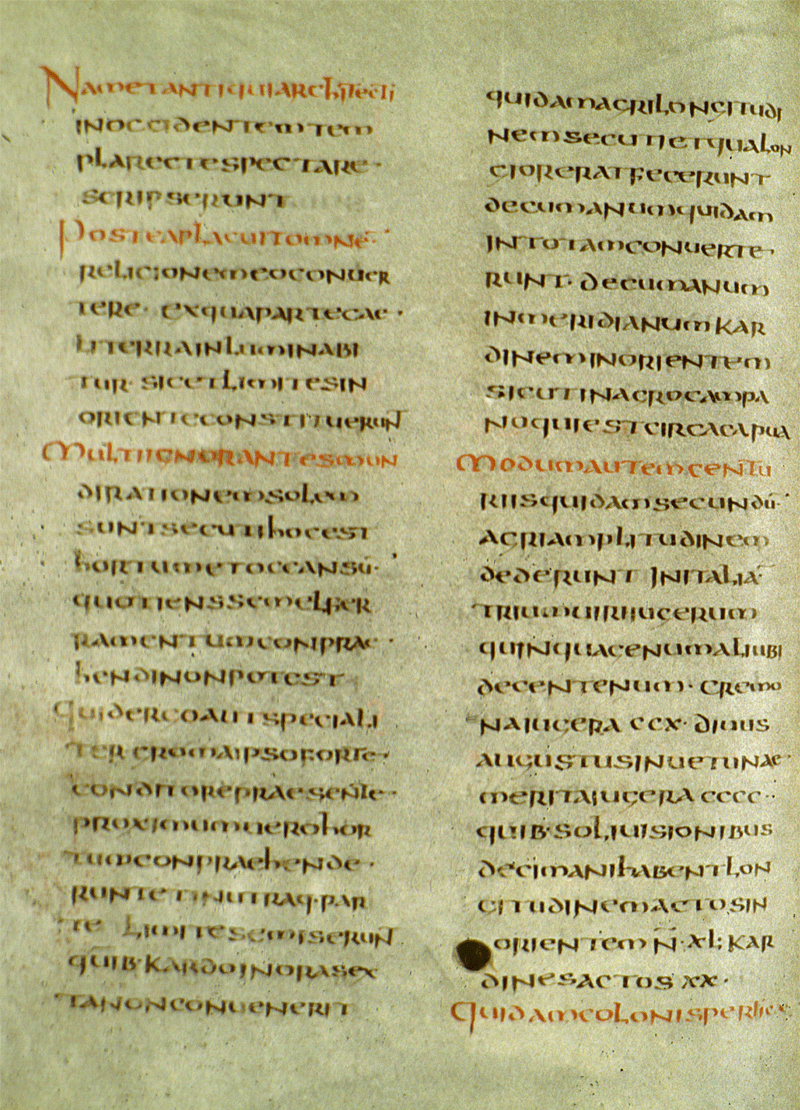 NAMETANTIQUIARCHITECTI
INOCCIDENTEMTEM
PLARECTESPECTARE·
SCRIPSERUNT
POSTEAPLACUITOMNE·
RELIGIONEMEOCONUER
TERE· EXQUAPARTECAE·
LITERRAINLUMINABI
TUR SICETLIMITESIN
ORIENTECONSTITUERUN
MULTIIGNORANTESMUN
DIRATIONEMSOLEM
SUNTSECUTIHOCEST
HORTUMETOCCANSU·
QUOTIENSSEMELFER
RAMENTUMCONPRAE·
HENDINONPOTEST
QUIDERGOAUTISPECIALI
TER GROMAIPSOFORTE·
CONDITOREPRAESENTE·
PROXIMUMUEROHOR
TUMCONPRAEHENDE·
RUNTETINUTRAQ·PAR
TE LIMITESEMISERUN
QUIB·KARDOINORASEX
TANONCONUENERIT
QUIDAMAGRILONGITUDI
NEMSECUTIETQUALON
GIORERATFECERUNT
DECUMANUMQUIDAM
INTOTAMCONUERTE·
RUNT· DECUMANUM
INMERIDIANUMKAR
DINEMINORIENTEM
SICUTINAGROCAMPA
NOQUIESTCIRCACAPUA
MODUMAUTEMCENTU
RIISQUIDAMSECUNDU·
AGRIAMPLITUDINEM
DEDERUNT INITALIA·
TRIUMUIRIIUGERUM
QUINQUAGENUMALIUBI
DECENTENUM· CREMO
NAIUGERA CCX· DIUUS
AUGUSTUSINUETUNAE
MERITAIUGERA CCCC··
QUIB·SOLIUISIONIBUS
DECIMANIHABENTLON
GITUDINEMACTOSIN
ORIENTEM N·XL; KAR
DINESACTOS XX·
QUIDAMCOLONISPERTICE